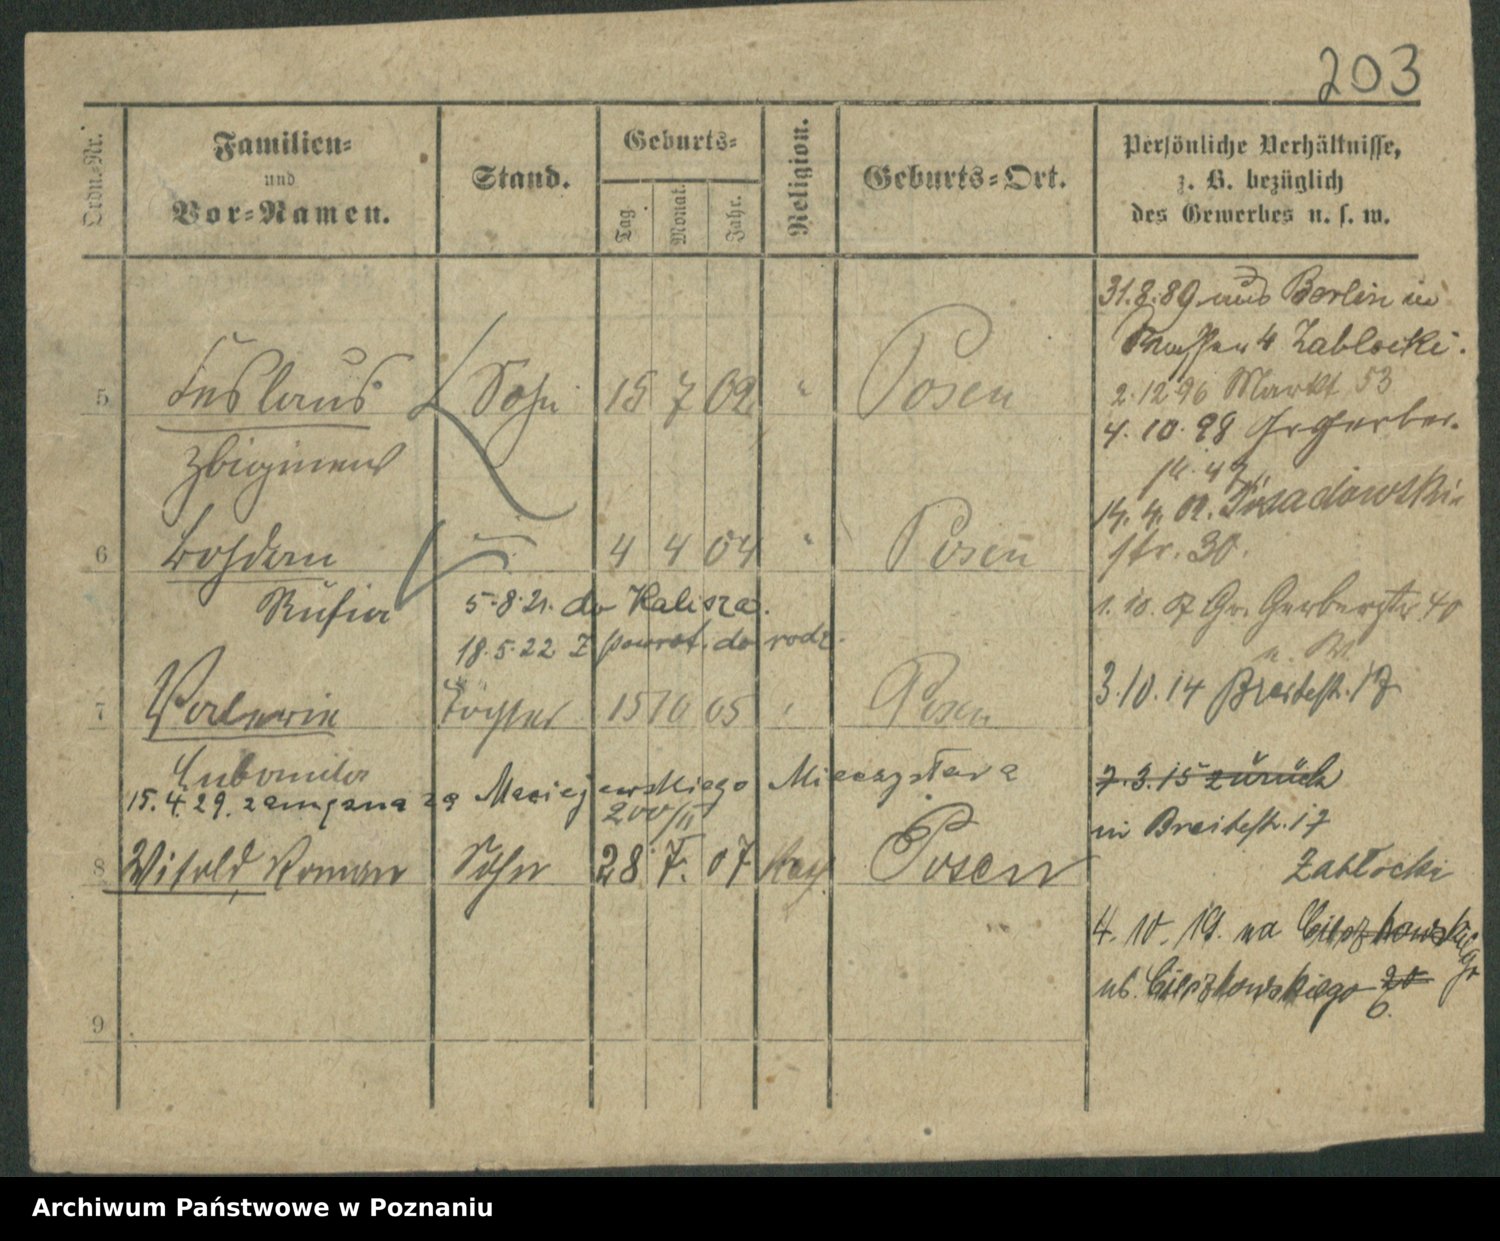 203
Ordn.-Nr.
Familien-
und
Vor-Namen.
Stand.
Geburts-
Tag.
Monat.
Jahr.
Religion.
Geburts-Ort.
Persönliche Verhältnisse,
z. B. bezüglich
des Gewerbes u. s. w.
31.8.89 aus Berlin in
4 Zablocki.
2.12 96 Markt 53
5 Ceslaus Sohn 15 7 02 " Posen
4. 10. 98 Gr Gerber-
Zbigniew
14. 4. 02. Posadowski-
str. 30.
6 Bohdan 4 4 04 " Posen
Rufin
5.8.21. do Kalisza.
1. 10. 07 Gr. Gerberstr 40
18.5.22 Z powrot. do rodz.
7 Valerie Tochter 15 10 05 " Posen
3.10.14 Breitestr. 17
Lubomila
15.4.29. zamężna za Maciejewskiego Mieczysława
200/II
7.3.15 zurück
in Breitestr. 17
Zabłocki
8 Witold Roman Sohn 28 7. 07 kath Posen
4. 10. 19. na Cieszkowskiego
ul. Cieszkowskiego 20
6.
9
Archiwum Państwowe w Poznaniu